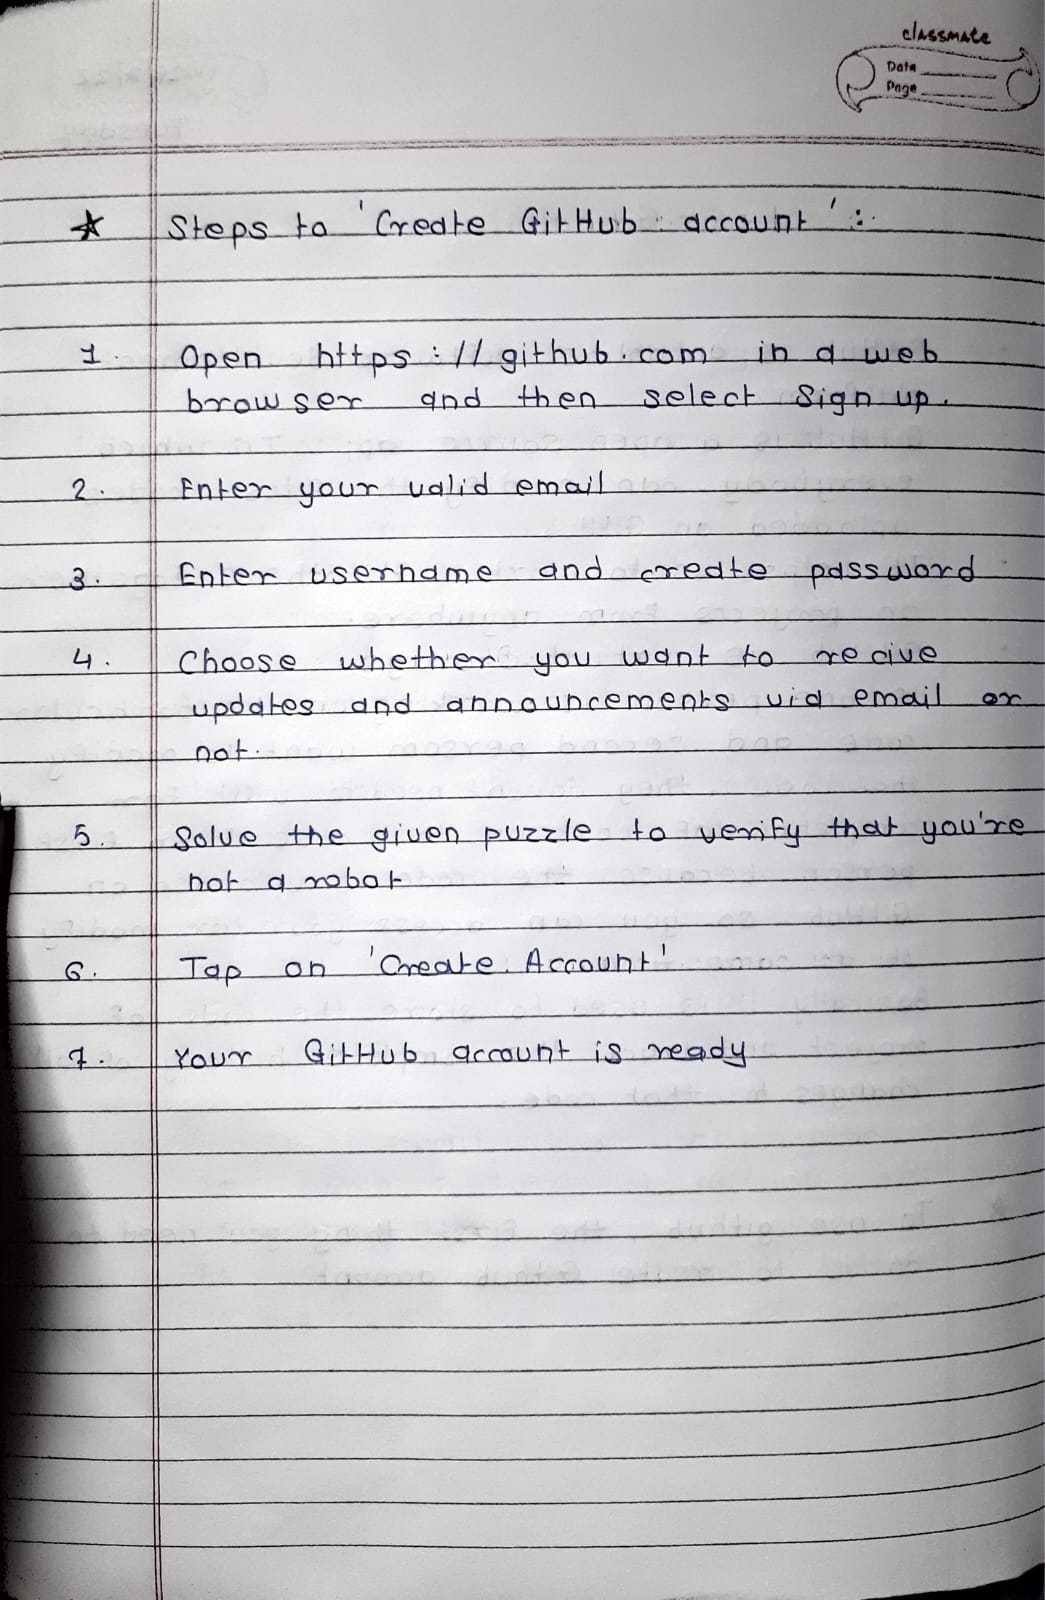 classmate
Date
Page
★ Steps to 'Create GitHub account' :
1. Open https://github.com in a web
browser and then select Sign up.
2. Enter your valid email
3. Enter username and create password
4. Choose whether you want to recive
updates and announcements via email or
not.
5. Solve the given puzzle to verify that you're
not a robot
6. Tap on 'Create Account'
7. Your GitHub account is ready